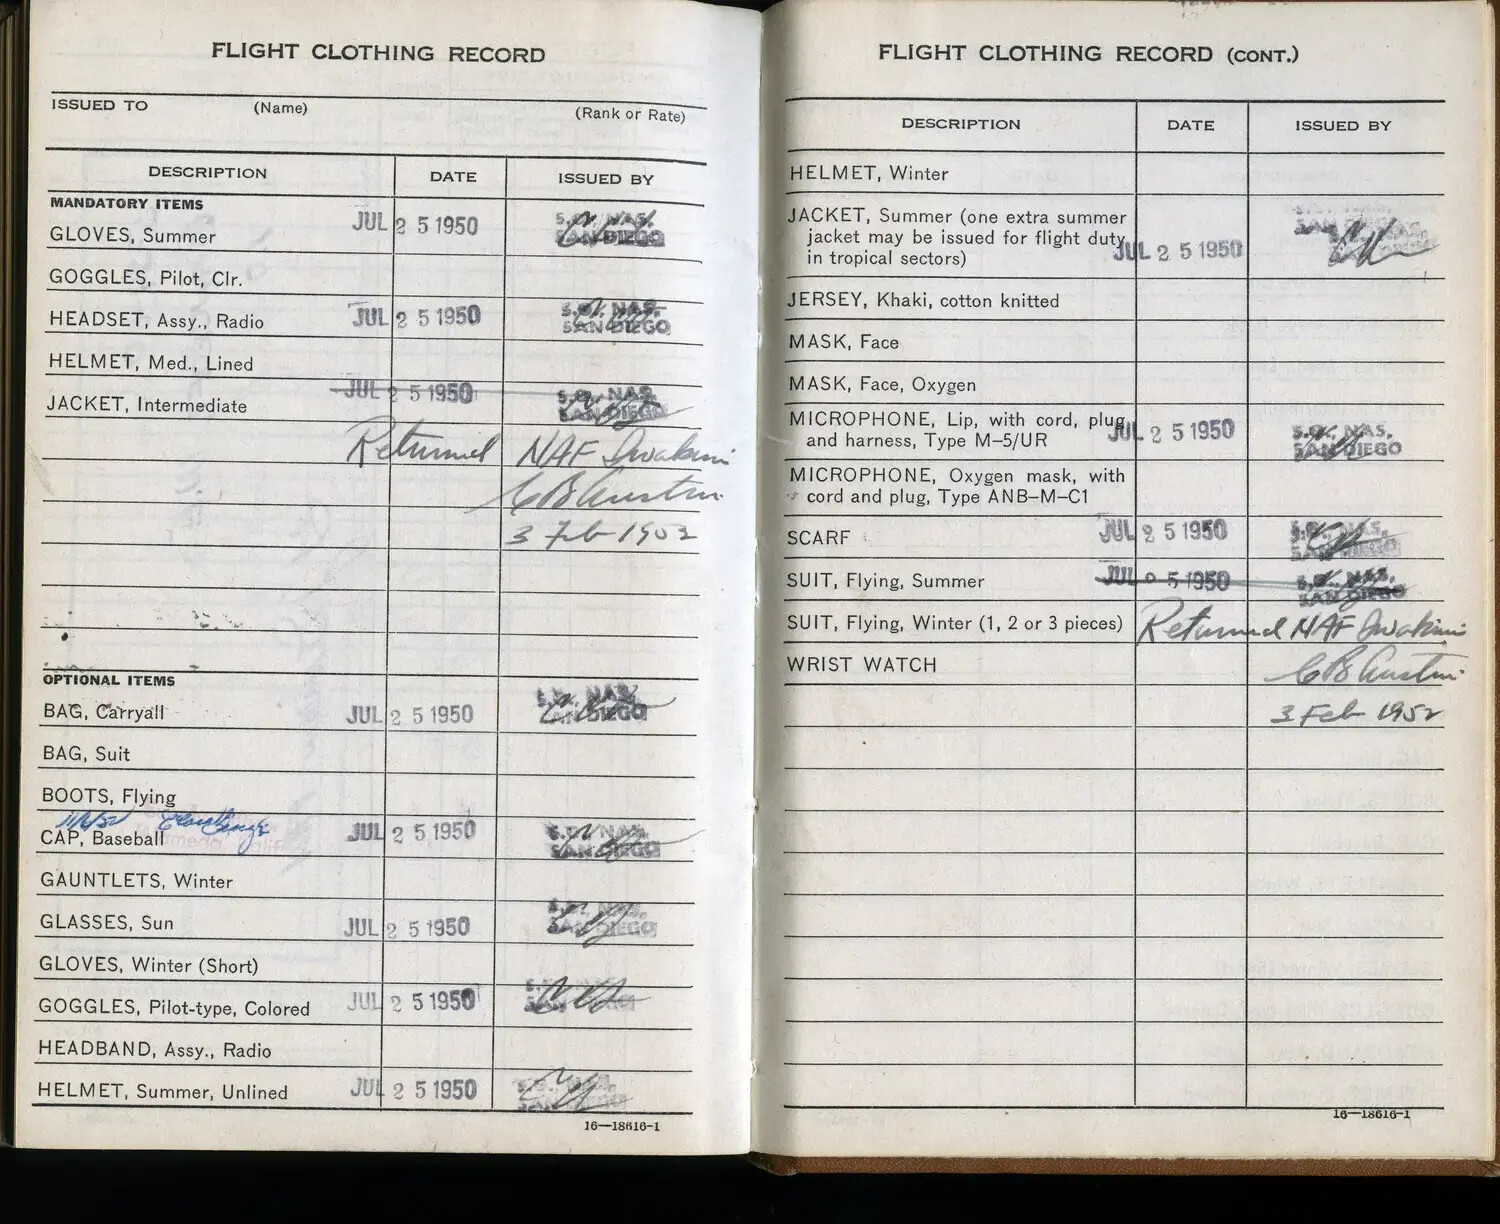 FLIGHT CLOTHING RECORD
ISSUED TO (Name) (Rank or Rate)
DESCRIPTION DATE ISSUED BY
MANDATORY ITEMS
GLOVES, Summer JUL 25 1950 S.D., NAS, SAN DIEGO
GOGGLES, Pilot, Clr.
HEADSET, Assy., Radio JUL 25 1950 S.D., NAS, SAN DIEGO
HELMET, Med., Lined
JACKET, Intermediate JUL 25 1950 S.D., NAS, SAN DIEGO
Returned NAF Iwakuni
CB Austin
3 Feb 1952
OPTIONAL ITEMS
BAG, Carryall JUL 25 1950 S.D., NAS, SAN DIEGO
BAG, Suit
BOOTS, Flying
11/6/52
CAP, Baseball JUL 25 1950 S.D., NAS, SAN DIEGO
GAUNTLETS, Winter
GLASSES, Sun JUL 25 1950 S.D., NAS, SAN DIEGO
GLOVES, Winter (Short)
GOGGLES, Pilot-type, Colored JUL 25 1950
HEADBAND, Assy., Radio
HELMET, Summer, Unlined JUL 25 1950 SAN DIEGO
16—18616-1
FLIGHT CLOTHING RECORD (CONT.)
DESCRIPTION DATE ISSUED BY
HELMET, Winter
JACKET, Summer (one extra summer
jacket may be issued for flight duty
in tropical sectors) JUL 25 1950
JERSEY, Khaki, cotton knitted
MASK, Face
MASK, Face, Oxygen
MICROPHONE, Lip, with cord, plug
and harness, Type M-5/UR JUL 25 1950 S.D., NAS, SAN DIEGO
MICROPHONE, Oxygen mask, with
cord and plug, Type ANB-M-C1
SCARF JUL 25 1950 S.D., NAS, SAN DIEGO
SUIT, Flying, Summer JUL 25 1950 S.D., NAS, SAN DIEGO
SUIT, Flying, Winter (1, 2 or 3 pieces) Returned NAF Iwakuni
WRIST WATCH CB Austin
3 Feb 1952
16—18616-1